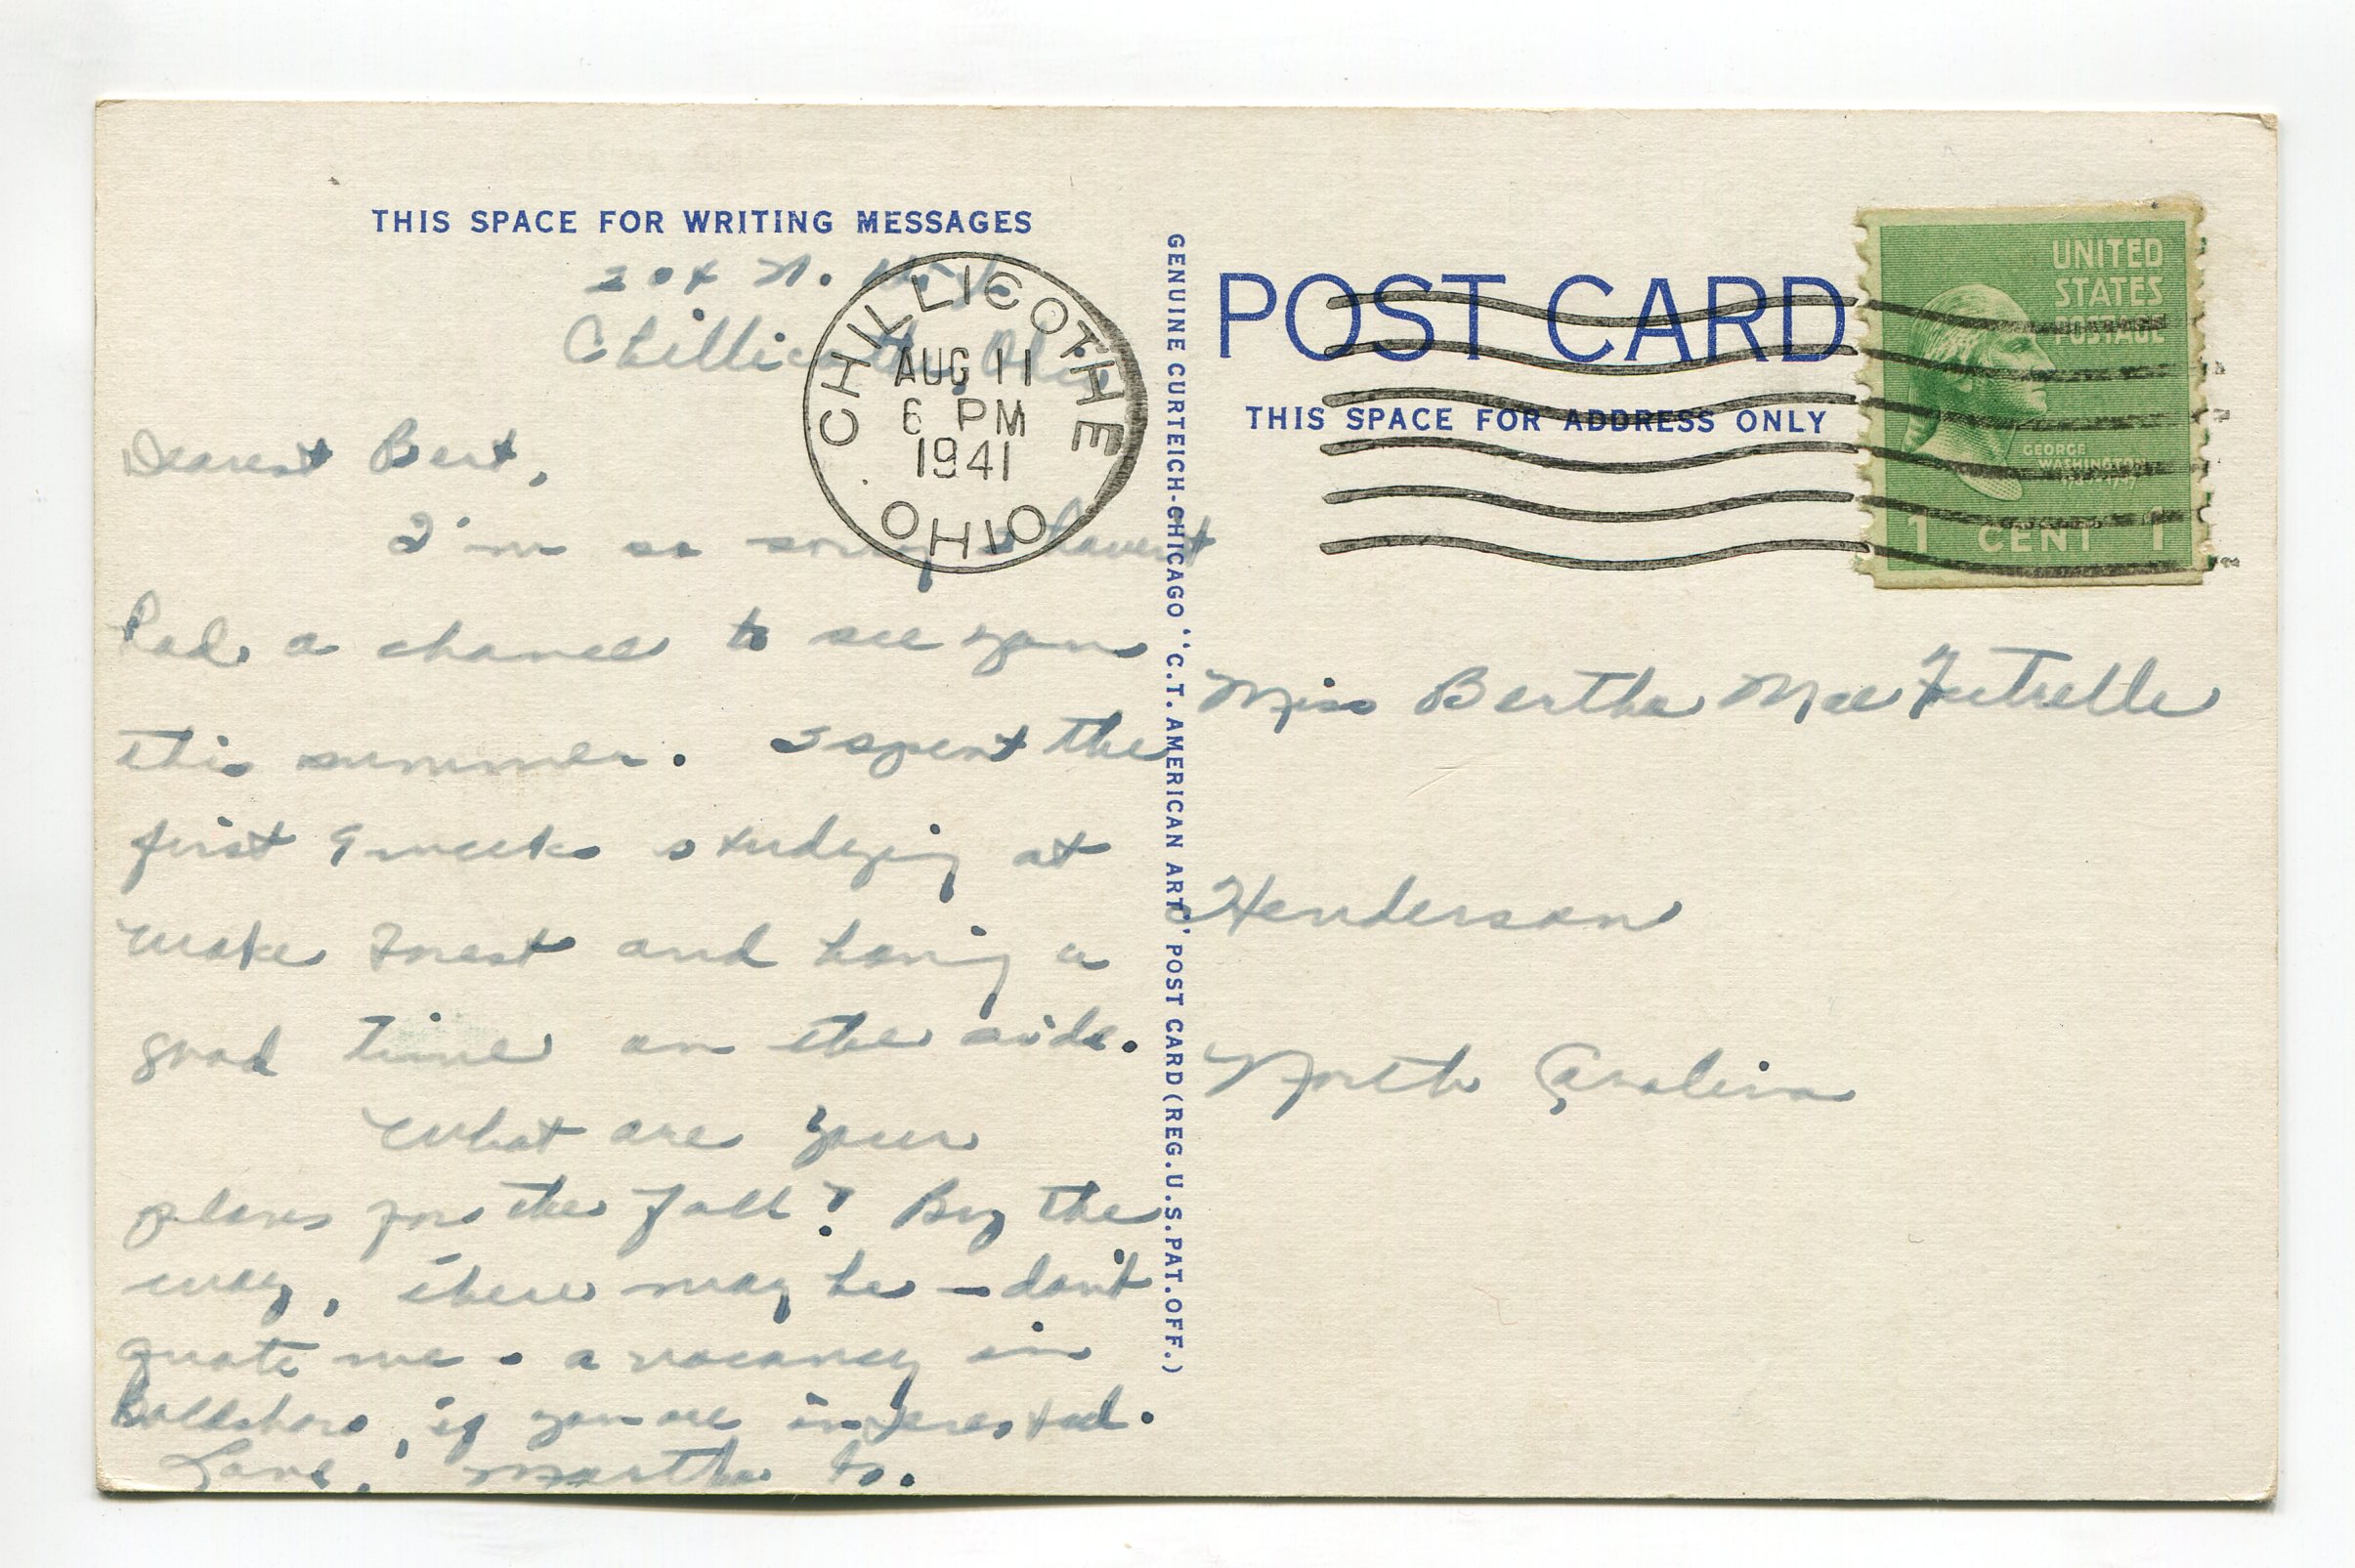 THIS SPACE FOR WRITING MESSAGES
204 N. High
Chillicothe, Ohio
CHILLICOTHE
AUG 11
6 PM
1941
OHIO
Dearest Bert,
I'm so sorry I haven't
had a chance to see you
this summer. I spent the
first 9 weeks studying at
Wake Forest and having a
good time on the side.
What are your
plans for the fall? By the
way, there may be - don't
quote me - a vacancy in
if you are interested.
Love, Martha
GENUINE CURTEICH-CHICAGO "C.T. AMERICAN ART" POST CARD (REG. U.S. PAT. OFF.)
POST CARD
THIS SPACE FOR ADDRESS ONLY
UNITED
STATES
POSTAGE
GEORGE
WASHINGTON
1 CENT 1
Miss Bertha Mae Futrelle
Henderson
North Carolina